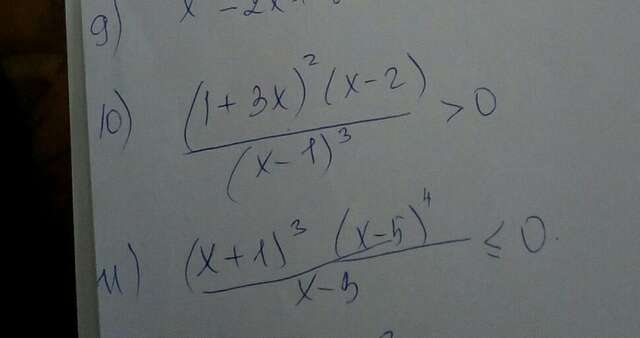 9) x - 2x
10) (1+3x)² (x-2) / (x-1)³ > 0
11) (x+1)³ (x-5)⁴ / x-3 ≤ 0.